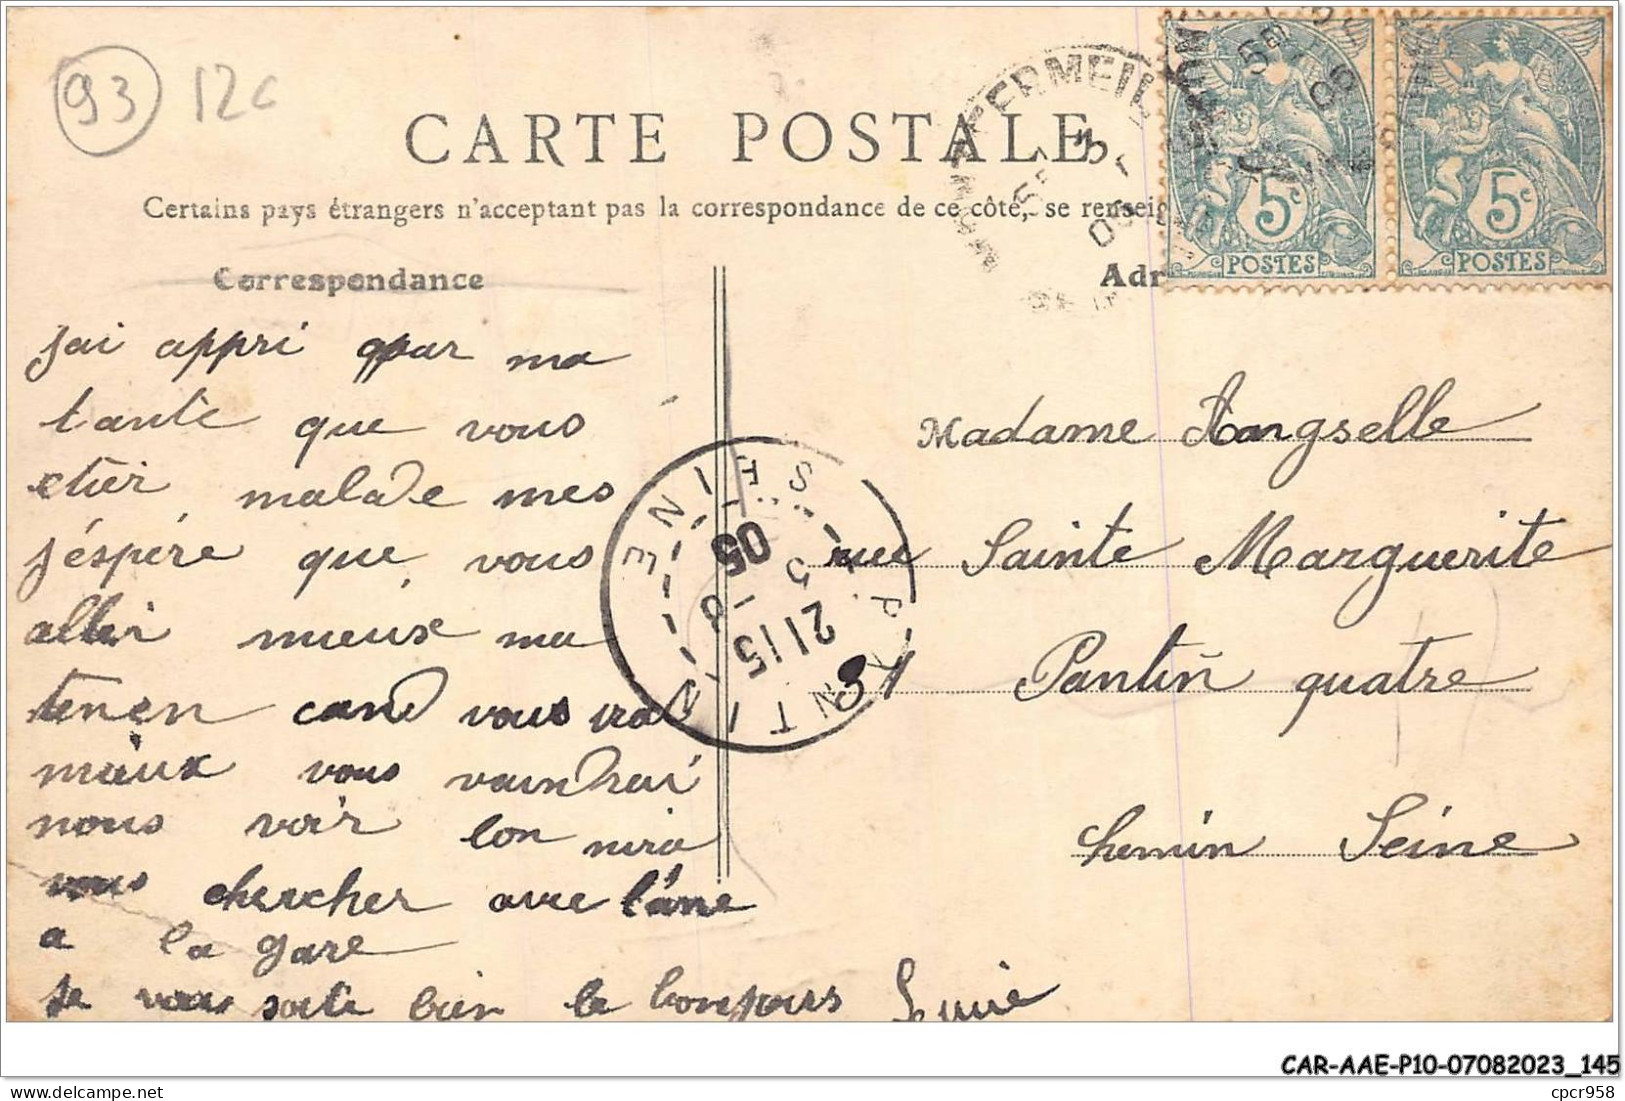 93 12c
CARTE POSTALE
Certains pays étrangers n'acceptent pas la correspondance de ce côté, se renseig
Correspondance
Adr
FRANÇAISE
5c
POSTES
5c
POSTES
MONTFERMEIL
PANTIN
SEINE
21 15
5 -8
05
jai appri par ma
tante que vous
etier malade mes
j'éspére que vous
allier mieux ma
tenen cand vous ira
mieux vous vaindrai
nous voir lon nira
vous chercher avec l'ane
a la gare
je vous soite bien le bonjours
Madame Angselle
rue Sainte Marguerite
31 Pantin quatre
chemin Seine
CAR-AAE-P10-07082023_145
cpcr958